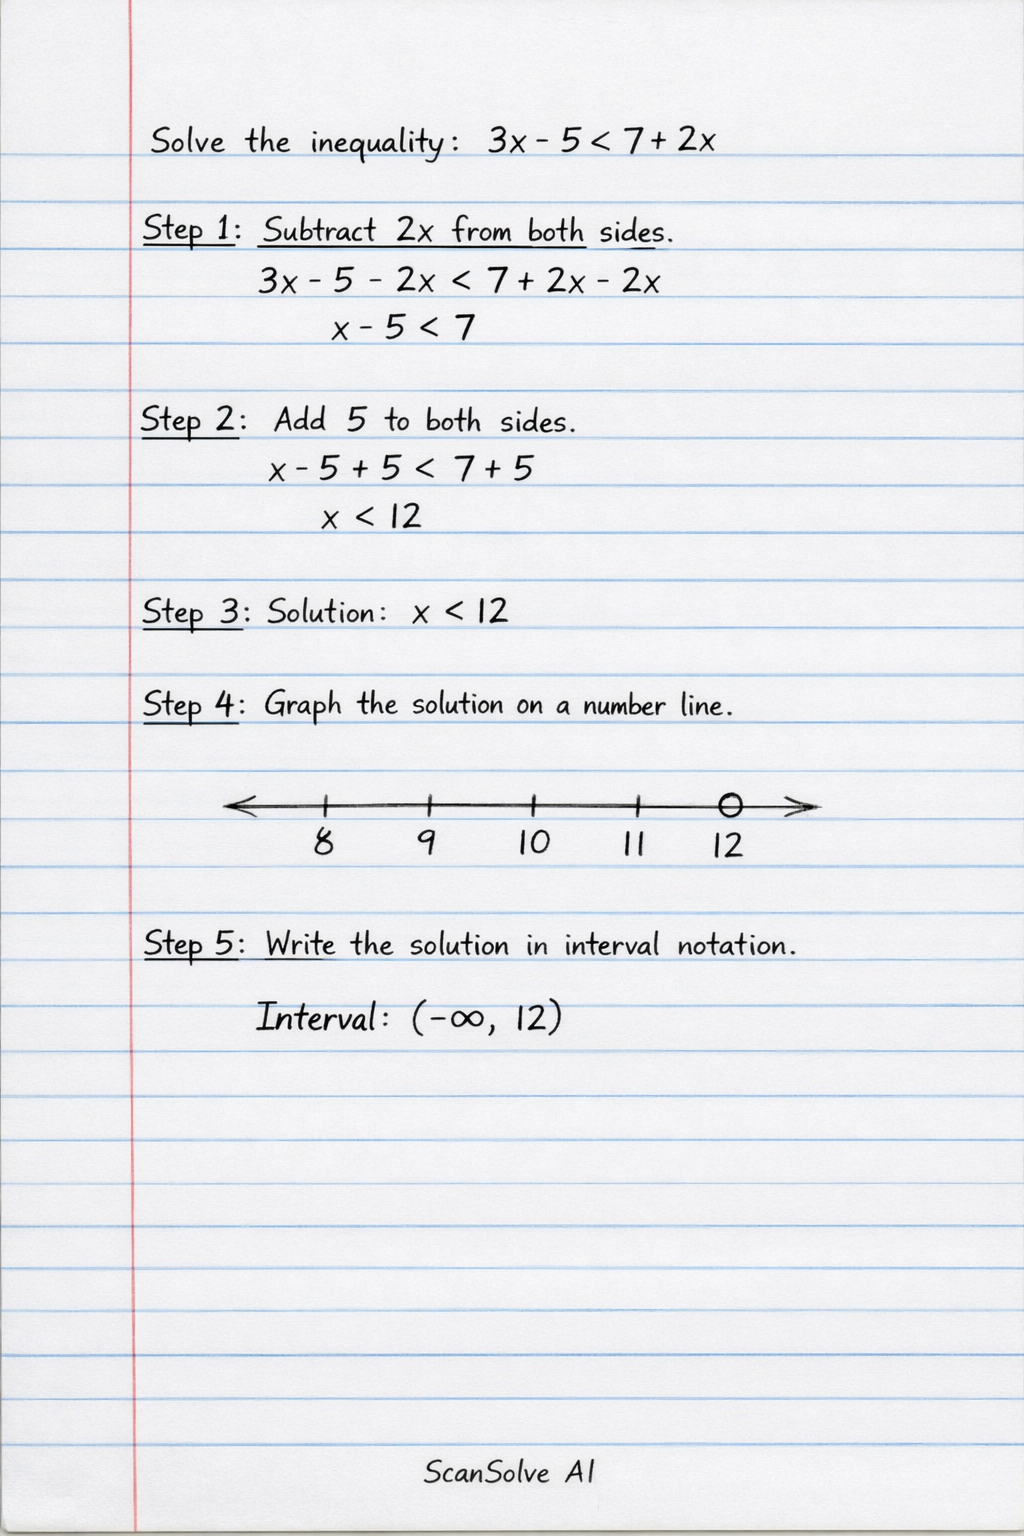 Solve the inequality: 3x - 5 < 7 + 2x
Step 1: Subtract 2x from both sides.
3x - 5 - 2x < 7 + 2x - 2x
x - 5 < 7
Step 2: Add 5 to both sides.
x - 5 + 5 < 7 + 5
x < 12
Step 3: Solution: x < 12
Step 4: Graph the solution on a number line.
8 9 10 11 12
Step 5: Write the solution in interval notation.
Interval: (-∞, 12)
ScanSolve AI